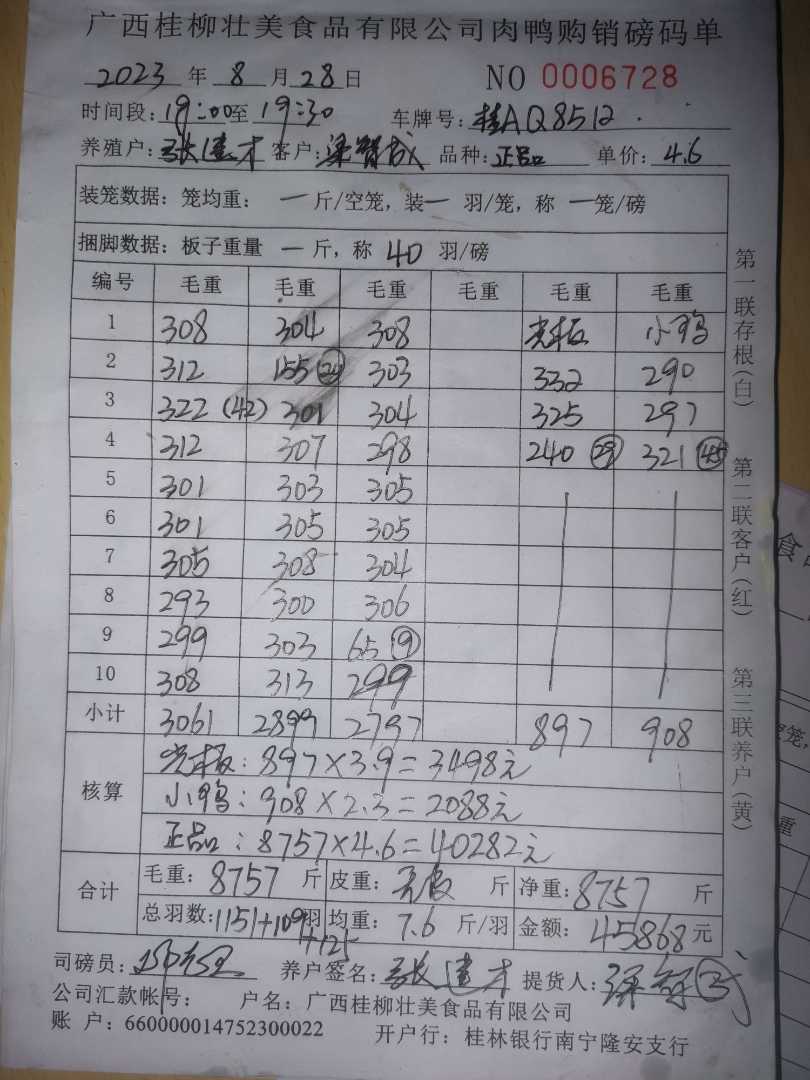 广西桂柳壮美食品有限公司肉鸭购销磅码单
2023 年 8 月 28 日 NO 0006728
时间段: 19:00至 19:30 车牌号: 桂AQ8512
养殖户: 张建才 客户: 梁智成 品种: 正品 单价: 4.6
装笼数据: 笼均重: 一 斤/空笼, 装一 羽/笼, 称 一笼/磅
捆脚数据: 板子重量 一 斤, 称 40 羽/磅
编号 毛重 毛重 毛重 毛重 毛重 毛重
1 308 304 308 光板 小鸭
2 312 155(21) 303 332 290
3 322(42) 301 304 325 297
4 312 307 298 240(29) 321(45)
5 301 303 305
6 301 305 305
7 305 308 304
8 293 300 306
9 299 303 65(9)
10 308 313 299
小计 3061 2899 2797 897 908
核算 光板: 897×3.9=3498元
小鸭: 908×2.3=2088元
正品: 8757×4.6=40282元
合计 毛重: 8757 斤 皮重: 斤 净重: 8757 斤
总羽数: 1151+109羽 均重: 7.6 斤/羽 金额: 45868元
+125
司磅员: 养户签名: 张建才 提货人:
公司汇款帐号: 户名: 广西桂柳壮美食品有限公司
账 户: 660000014752300022 开户行: 桂林银行南宁隆安支行
第一联存根(白) 第二联客户(红) 第三联养户(黄)